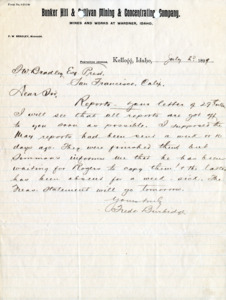 Bunker Hill & Sullivan Mining & Concentrating Company,
MINES AND WORKS AT WARDNER, IDAHO.
Kellogg, Idaho, July 2nd
F W Bradley Esq Pres.
San Francisco, Caly.
Dear Sir,
Reports, your letter of 29
I will see that all reports are got off
to you soon as possible. I supposed the
May reports had been sent a week or 10
days ago. They were finished then but
Simmons informs me that he has been
waiting for Rogers to copy them & the latter
has been absent for a week. The
Mean Statements will go tomorrow.
Yours truly
Fredk Burbidge